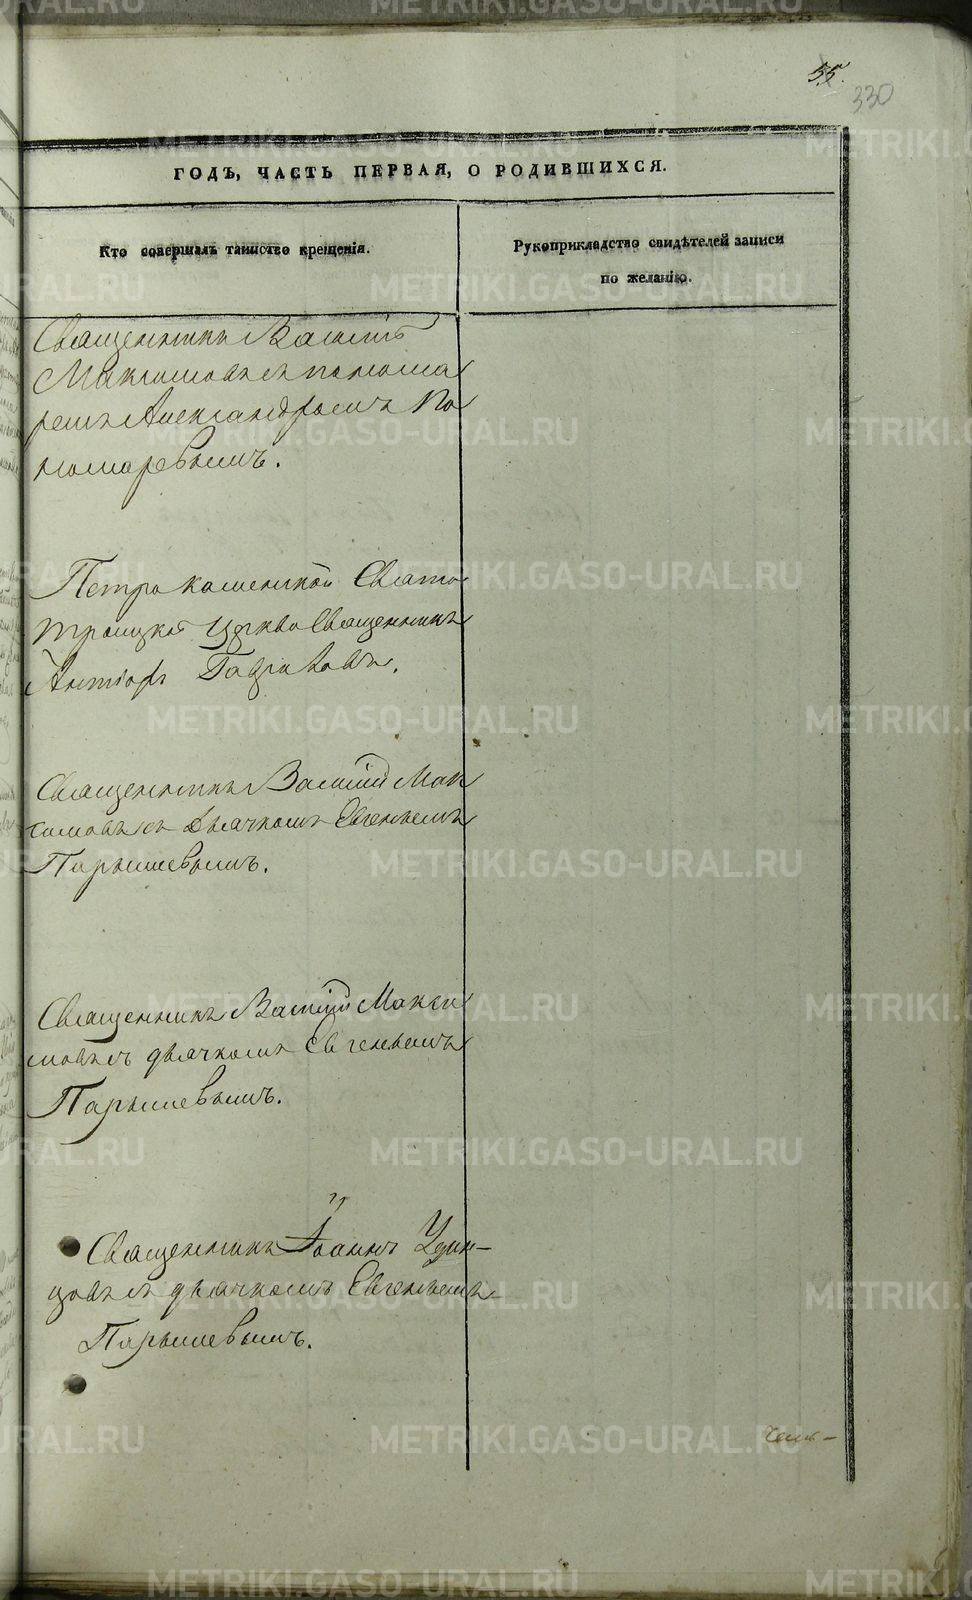 55.
330
ГОДЪ, ЧАСТЬ ПЕРВАЯ, О РОДИВШИХСЯ.
Кто совершалъ таинство крещенія.
Рукоприкладство свидѣтелей записи
по желанію.
Священникъ Василій
Максимовъ съ понома
ремъ Александромъ По
номаревымъ.
Петрокаменской Свято
Троицкой Церкви Священникъ
Гавриловъ.
Священникъ Василій Мак
симовъ съ дьячкомъ Евгеньемъ
Парышевымъ.
Священникъ Василій Макси
мовъ съ дьячкомъ Евгеньемъ
Парышевымъ.
Священникъ Іоаннъ Удин-
цовъ съ дьячкомъ Евгеньемъ
Парышевымъ.
METRIKI.GASO-URAL.RU